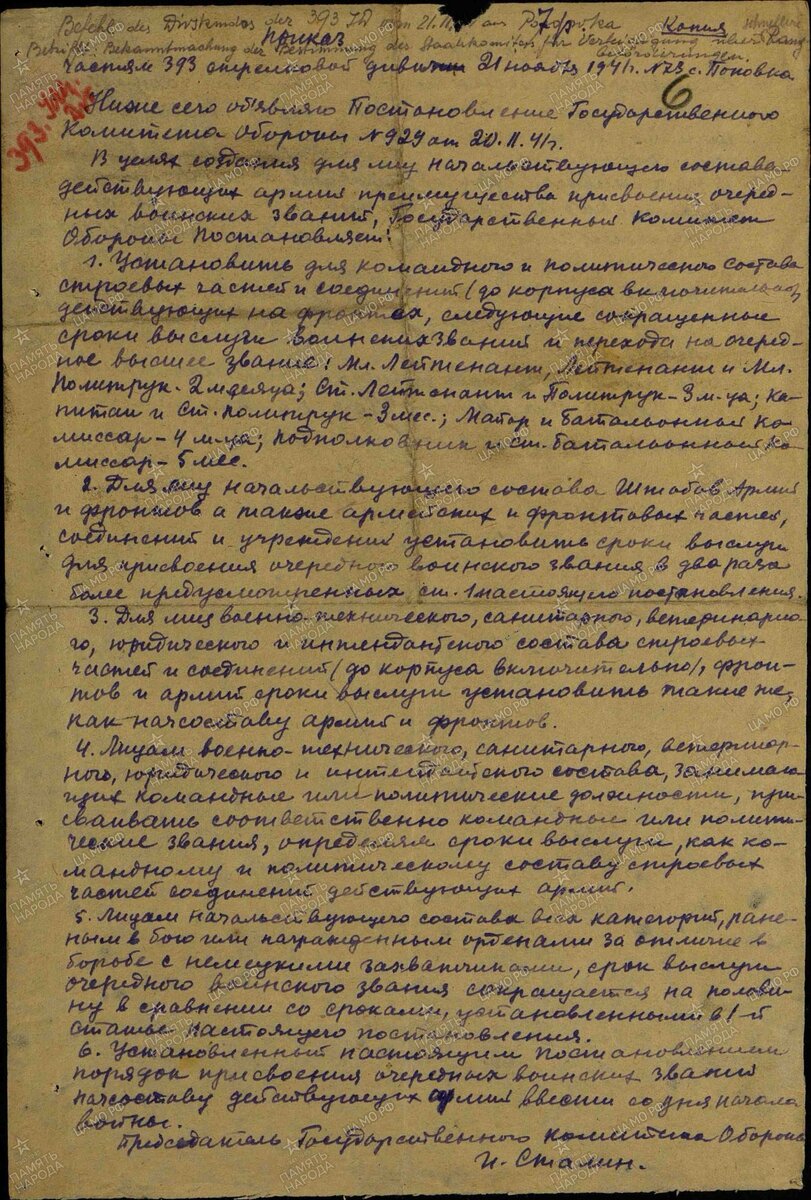 Befehl des Divskmdos der 393 JD vom 21.11.41 aus Popowka
Копия
Приказ
Betrifft: Bekanntmachung der Bestimmung des Staatskomitees für Verteidigung über Rang
beförderungen.
частям 393 стрелковой дивизии 21 ноября 1941г. №73 с. Поповка
6
393. Schtz. Div.
Ниже сего об'являю Постановление Государственного
Комитета Обороны №929 от 20.11.41г.
В целях создания для лиц начальствующего состава
действующих армий преимущества присвоения очеред-
ных воинских званий, Государственный Комитет
Обороны Постановляет:
1. Установить для командного и политического состава
строевых частей и соединений (до корпуса включительно),
действующих на фронтах, следующие сокращенные
сроки выслуги воинских званий и перехода на очеред-
ное высшее звание: Мл. Лейтенант, Лейтенант и Мл.
Политрук - 2 месяца; Ст. Лейтенант и Политрук - 3 м-ца; Ка-
питан и Ст. политрук - 3 мес.; Майор и Батальонный ко-
миссар - 4 м-ца; подполковник и ст. батальонный ко-
миссар - 5 мес.
2. Для лиц начальствующего состава Штабов Армий
и фронтов а также армейских и фронтовых частей,
соединений и учреждений установить сроки выслуги
для присвоения очередного воинского звания в два раза
более предусмотренных ст. 1 настоящего постановления.
3. Для лиц военно-технического, санитарного, ветеринарно-
го, юридического и интендантского состава строевых
частей и соединений (до корпуса включительно), фрон-
тов и армий сроки выслуги установить такие же,
как начсоставу армий и фронтов.
4. Лицам военно-технического, санитарного, ветеринар-
ного, юридического и интендантского состава, занимаю-
щих командные или политические должности, при-
сваивать соответственно командные или полити-
ческие звания, определяя сроки выслуги, как ко-
мандному и политическому составу строевых
частей соединений действующих армий.
5. Лицам начальствующего состава всех категорий, ране-
ным в бою или награжденным орденами за отличие в
борьбе с немецкими захватчиками, срок выслуги
очередного воинского звания сокращается на полови-
ну в сравнении со сроками, установленными в 1-й
статье настоящего постановления.
6. Установленный настоящим постановлением
порядок присвоения очередных воинских званий
начсоставу действующих армий ввести со дня начала
войны.
Председатель Государственного комитета Обороны
И. Сталин.